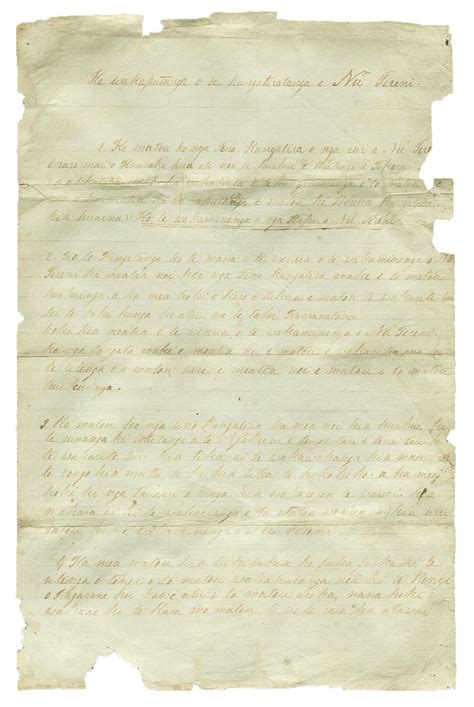 He wakaputanga o te Rangatiratanga o Nu Tireni
1. Ko matou ko nga Tino Rangatira o nga iwi o Nu Tire
i raro mai o Haurake kua oti nei te huihui i Waitangi i Tokerau
wakaputa i te Rangatiratanga o to matou
a ka meatia ka wakaputaia e matou he Wenua Rangatira
kia huaina Ko te wakaminenga o nga Hapu o Nu Tireni
2. Ko te Kingitanga ko te mana i te wenua o te wakaminenga o Nu
Tireni ka meatia nei kei nga Tino Rangatira anake i to matou
huihuinga a ka mea hoki e kore e tukua e matou te wakarite ture
ki te tahi hunga ke atu, me te tahi Kawanatanga
hoki kia meatia i te wenua o te wakaminenga o Nu Tireni
ko nga tangata anake e meatia nei e matou e wakarite ana
ritenga o o matou ture e meatia nei e matou i to matou
huihuinga.
3 Ko matou ko nga tino Rangatira ka mea nei kia huihui ki
te runanga ki Waitangi a te Ngahuru i tenei tau i tenei tau ki
te wakarite ture kia tika ai te wakawakanga kia mau
te rongo kia mutu te he kia tika te hokohoko. a ka mea
hoki ki nga tauiwi o runga kia wakarerea te wawai kia
mahara ai ki te wakaoranga o to matou wenua, a kia uru
ratou ki te wakaminenga o Nu Tireni
4 Ka mea matou kia tuhituhia he pukapuka ki te
ritenga o tenei o to matou wakaputanga nei ki te Kingi
o Ingarani hei kawe atu i to matou aroha, nana hoki i
wakaae ki te Kara mo matou.